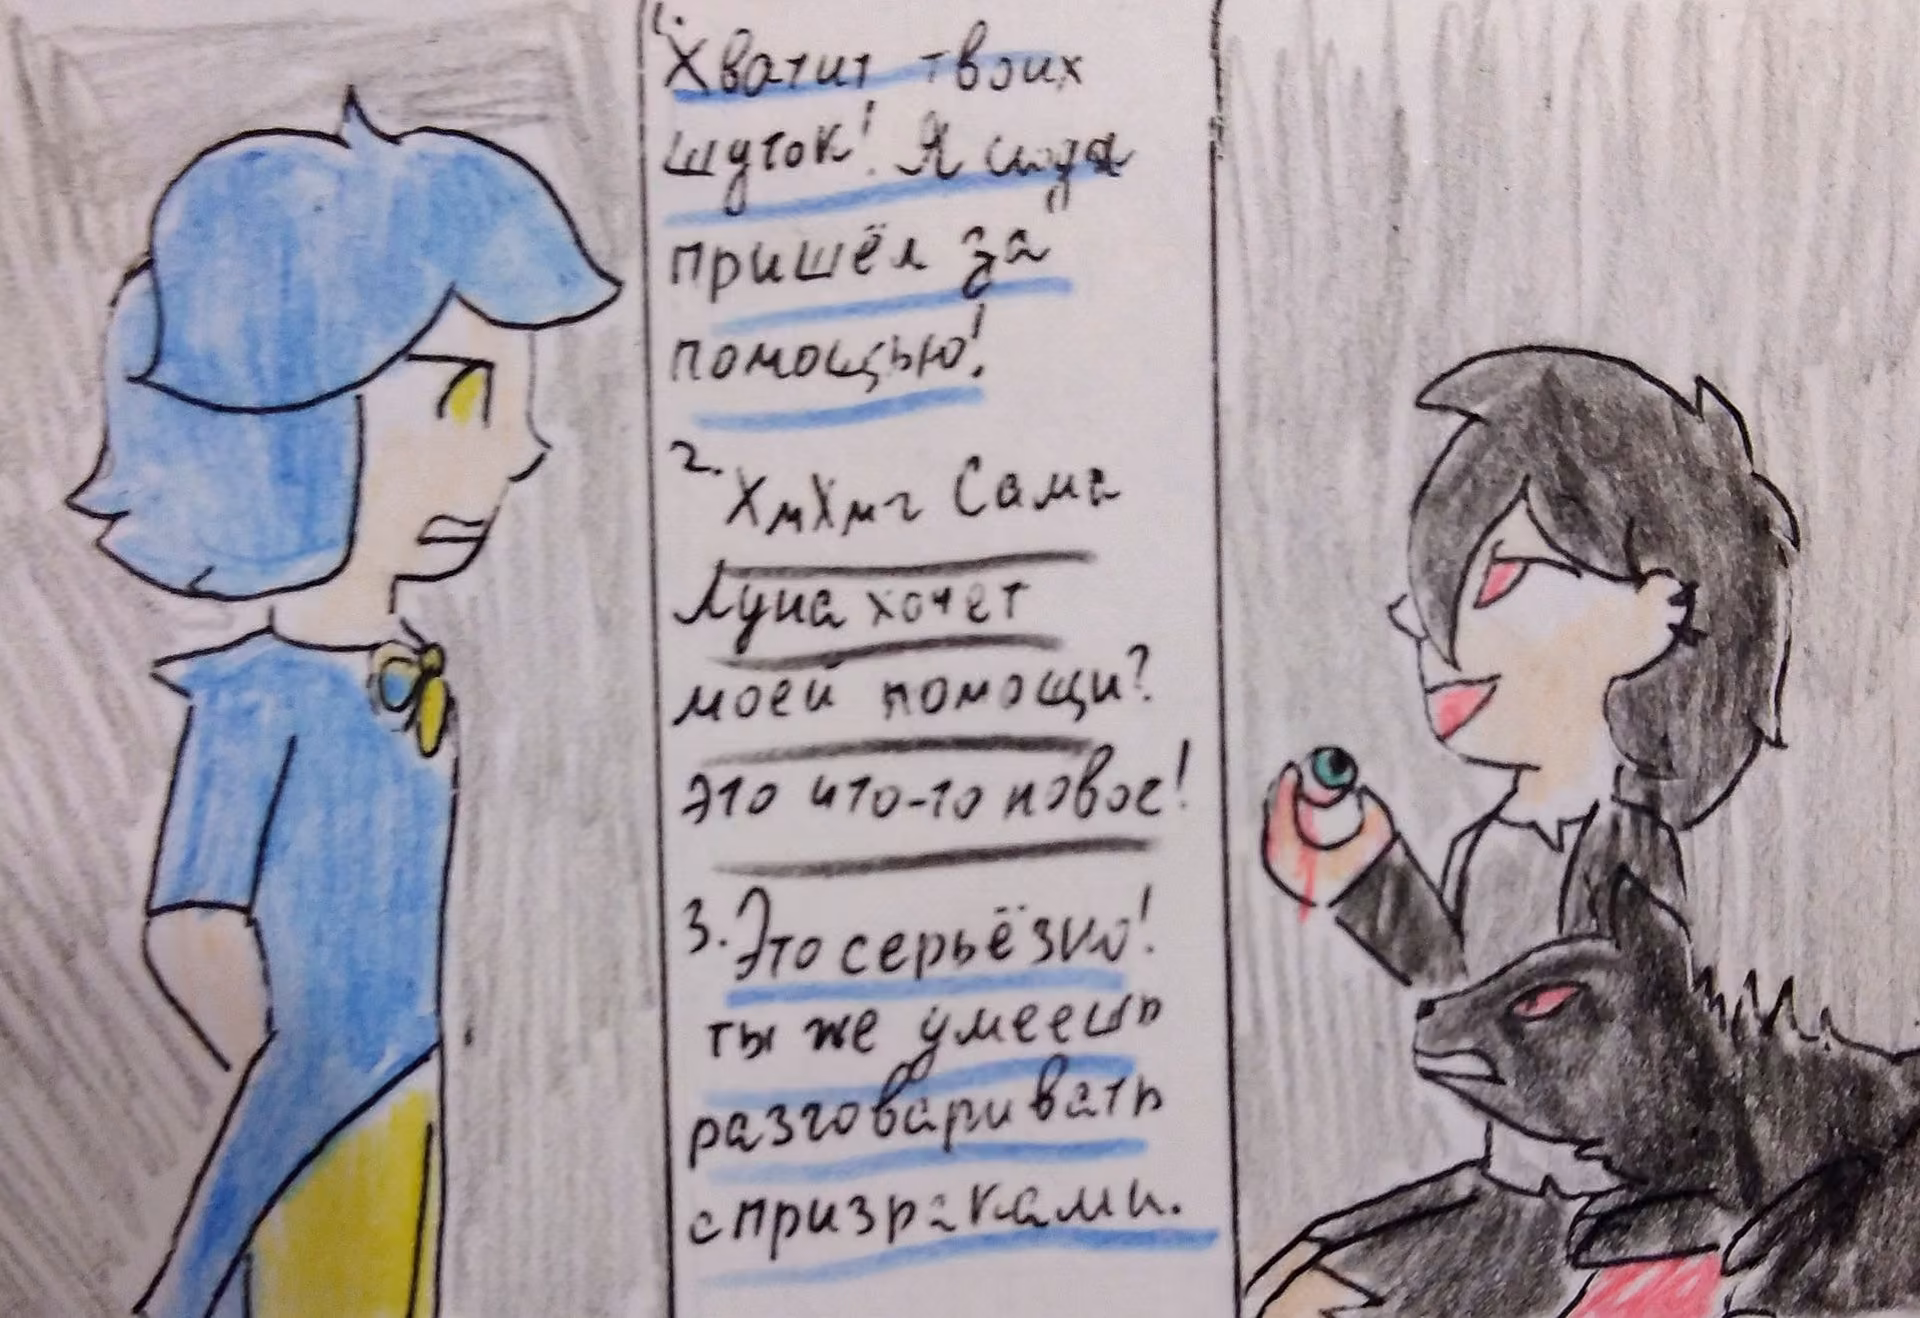 1.
Хватит твоих
шуток! Я сюда
пришёл за
помощью!
2.
ХмХмг Сама
Луна хочет
моей помощи?
это что-то новое!
3. Это серьёзно!
ты же умеешь
разговаривать
с призраками.